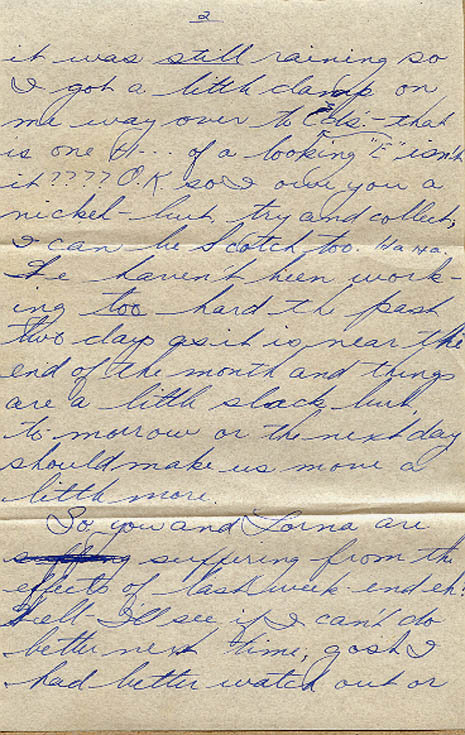 2
it was still raining so
I got a little damp on
me way over to Ed's - that
is one H--- of a looking "E" isn't
it???? O.K. so I owe you a
nickel - but, try and collect,
I can be Scotch too. Ha Ha.
We haven't been work-
ing too hard the past
two days as it is near the
end of the month and things
are a little slack but,
to morrow or the next day
should make us move a
little more.
So you and Lorna are
suffering from the
effects of last week-end eh!
Well - I'll see if I can't do
better next time, gosh I
had better watch out or